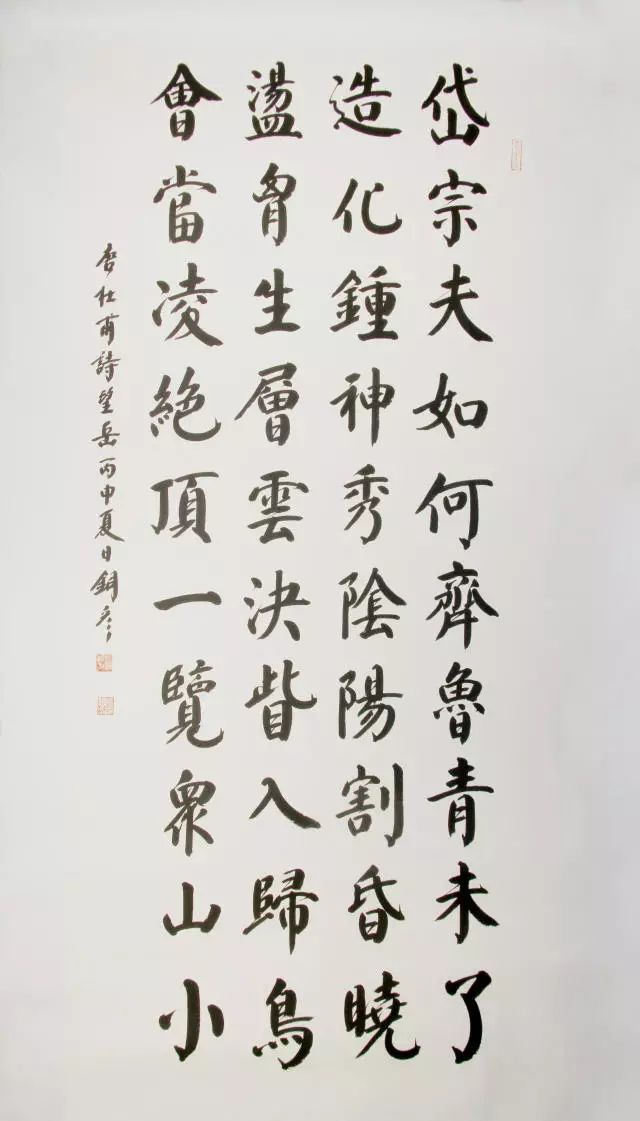 岱宗夫如何齊魯青未了
造化鍾神秀陰陽割昏曉
盪胷生層雲決眥入歸鳥
會當凌絕頂一覽衆山小
唐杜甫詩望岳丙申夏日鈅彦